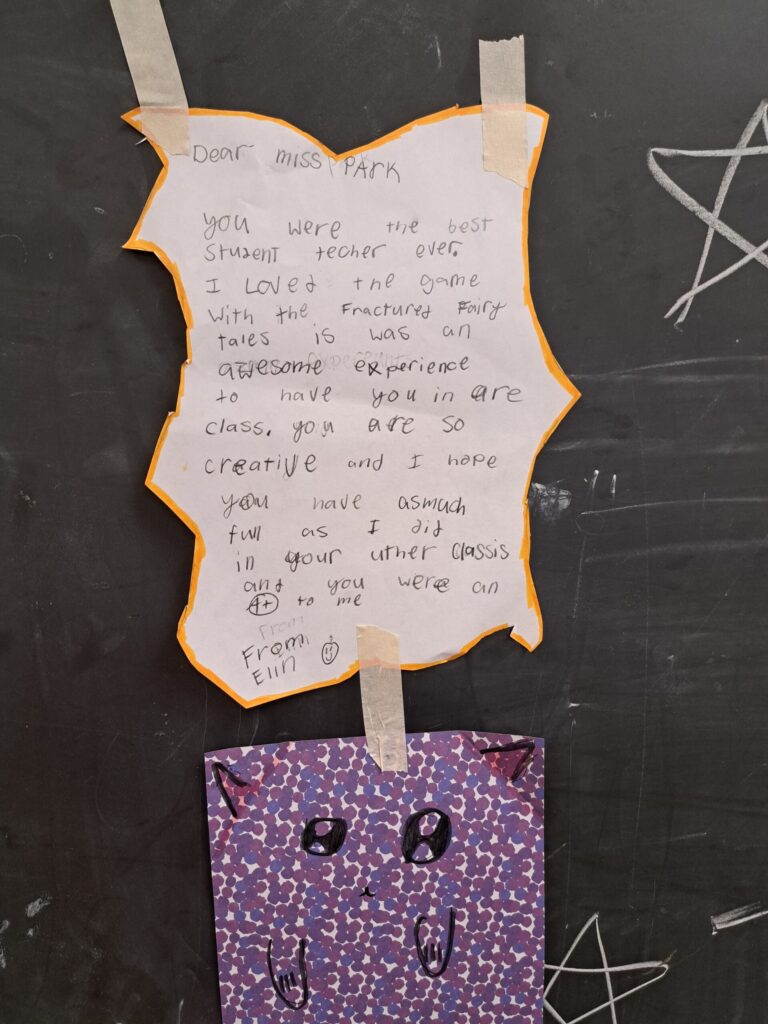 Dear miss PArk
you were the best
Student techer ever.
I Loved the game
With the Fractured Fairy
tales is was an
awesome experience
to have you in are
class. you are so
creative and I hope
you have asmuch
full as I did
in your uther classis
and you were an
A+ to me
From
From
Elin